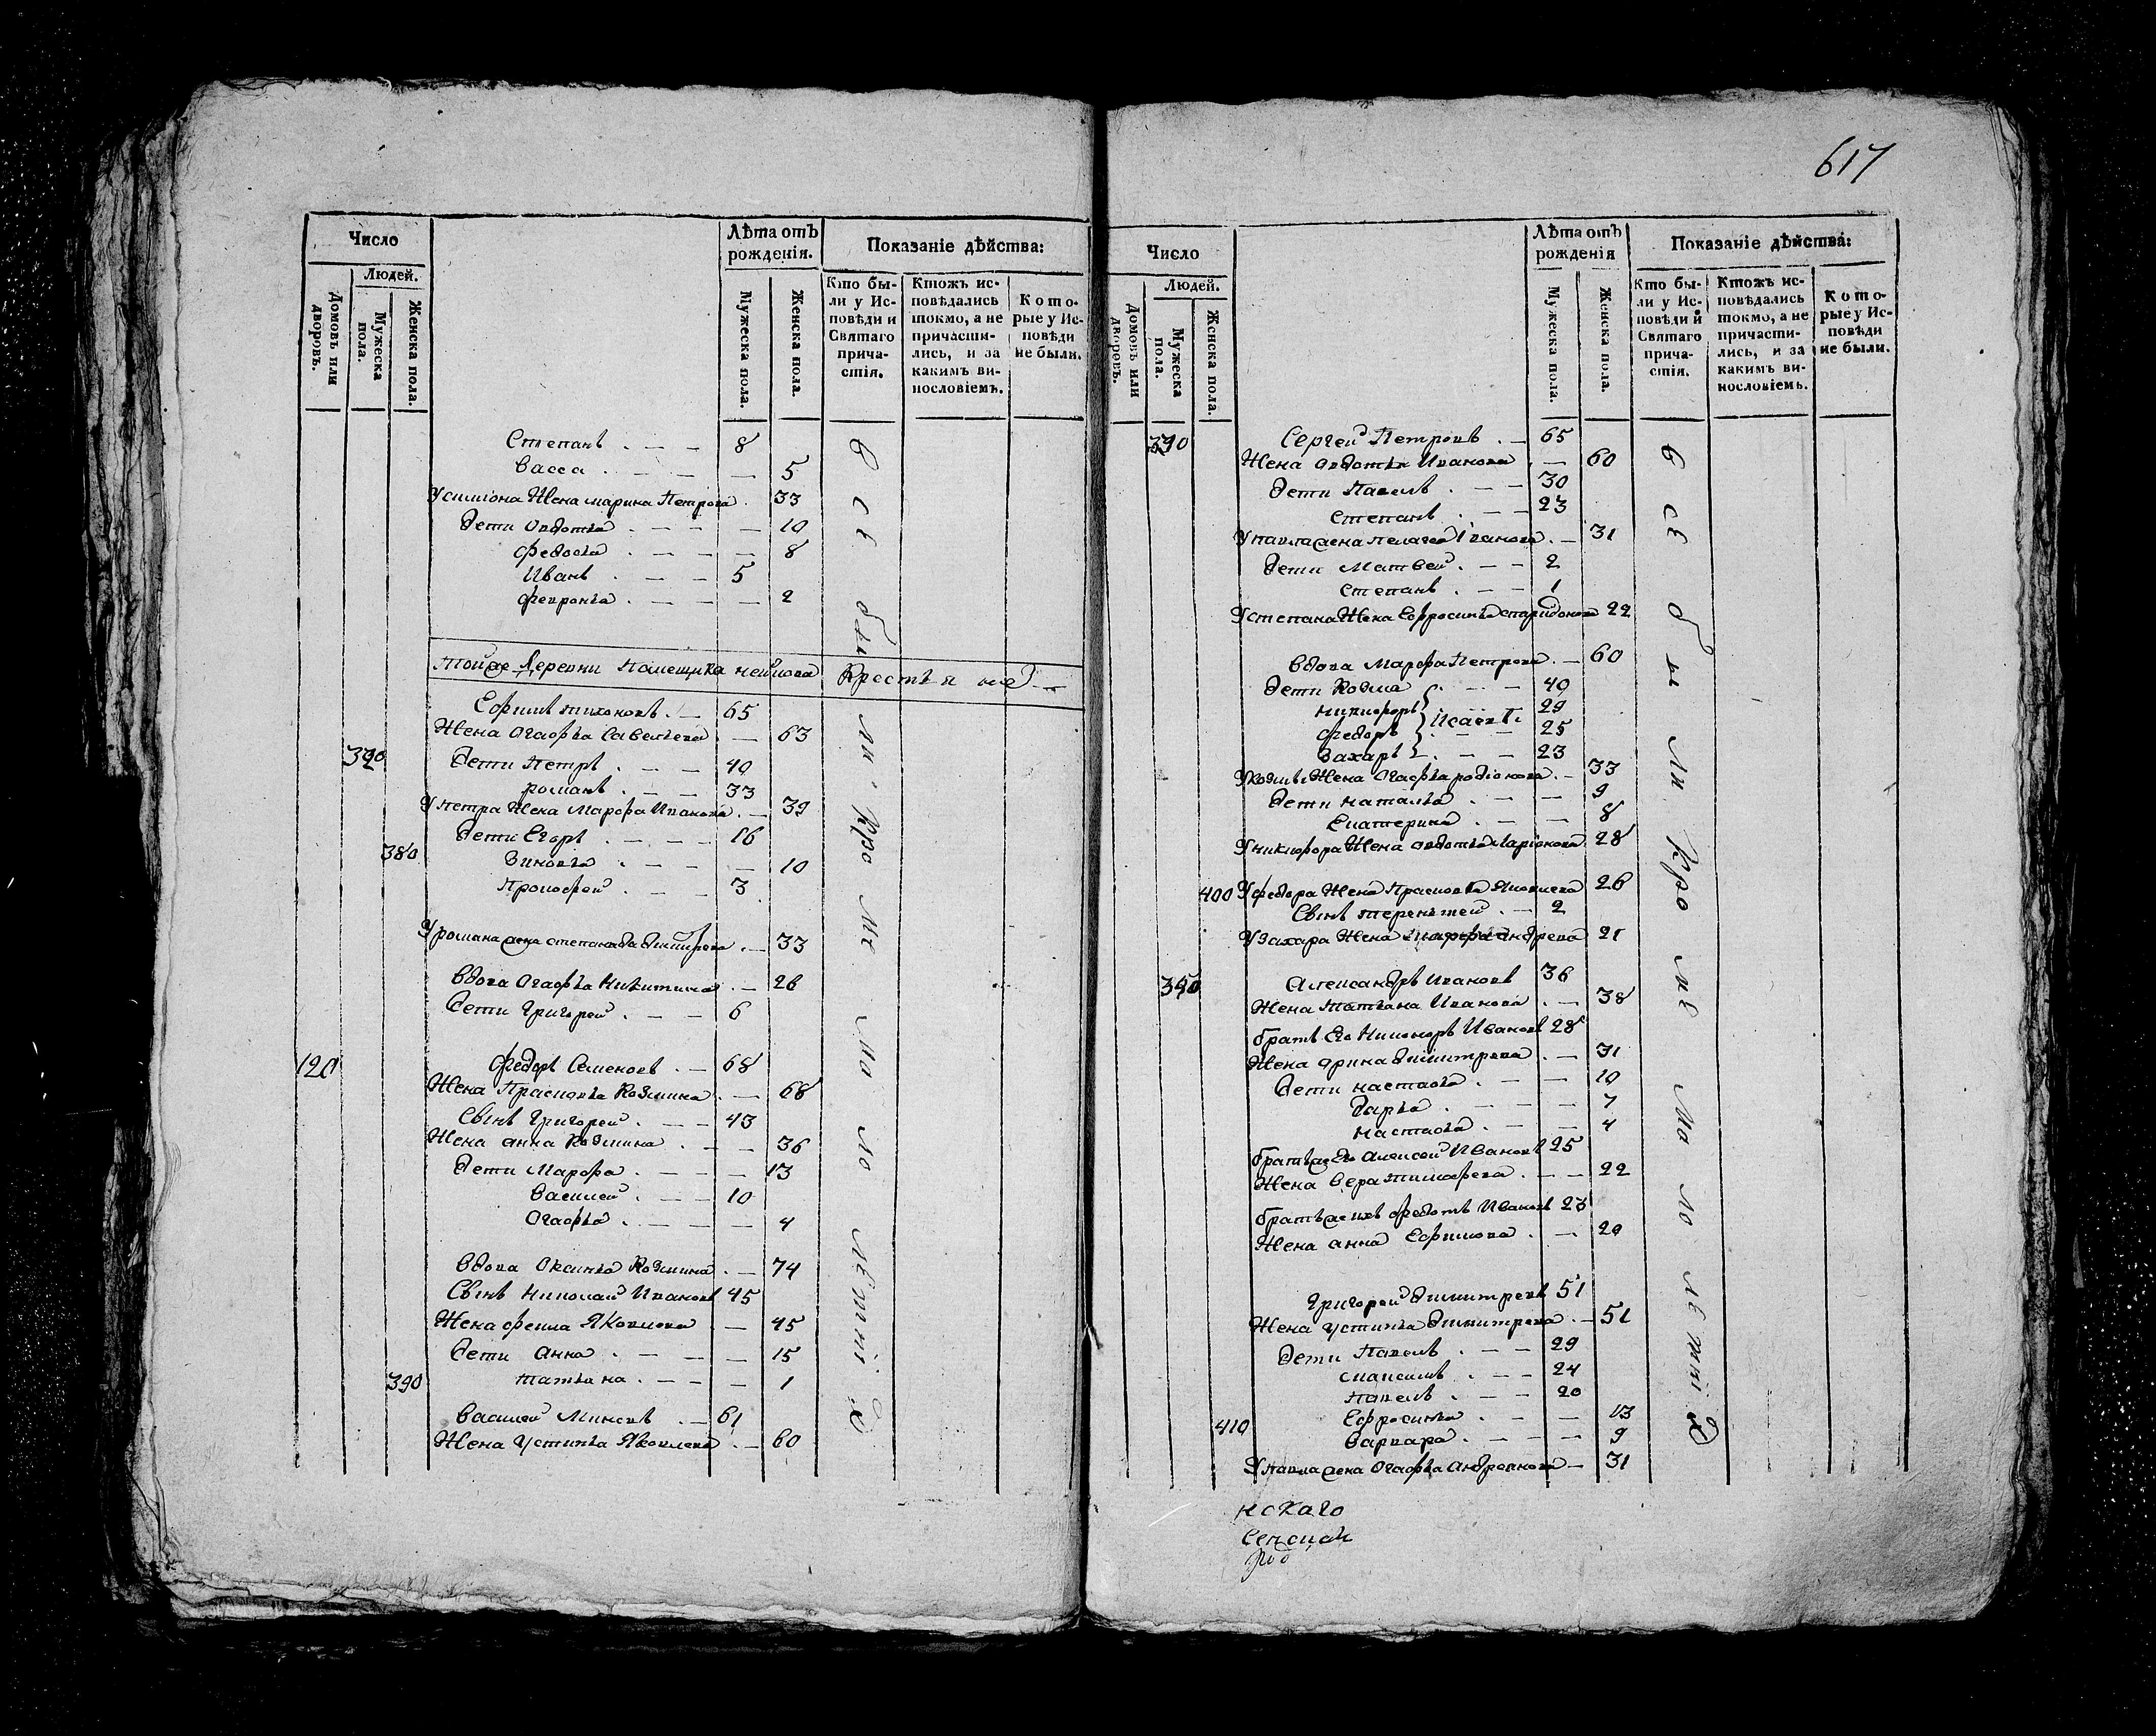 617
Число
Людей.
Домовъ или дворовъ.
Мужеска пола.
Женска пола.
Лѣта отъ рожденія.
Мужеска пола.
Женска пола.
Показаніе дѣйства:
Кто бы-
ли у Ис-
повѣди и
Святаго
прича-
стія.
Ктожъ ис-
повѣдались
токмо, а не
причасти-
лись, и за
какимъ ви-
нословіемъ.
Кото-
рые у Ис-
повѣди
не были.
Степанъ 8
Васса 5
Жена марина Петрова 33
дети Овдотья 10
федосья 8
Иванъ 5
февронья 2
тойже Деревни Помещика Крестьяне
Ефимъ тихоновъ 65
Жена Огафья Савельева 63
320 дети Петръ 40
романъ 33
У петра Жена Марфа Иванова 39
дети Егоръ 16
380 Зиновья 10
Прокофей 3
У романа жена степанида дмитрева 33
Вдова Огафья Никитина 26
дети Григорей 6
120 федоръ Семеновъ 68
Жена Прасковья Козмина 68
Сынъ Григорей 43
Жена анна Козмина 36
дети Марфа 13
Василей 10
Огафья 4
Вдова Оксинья Козмина 74
Сынъ Николай Ивановъ 45
Жена фекла Яковлева 45
дети анна 15
390 татьяна 1
Василей Минеевъ 61
Жена Устинья Яковлева 60
всѣ были кромѣ малолѣтнихъ
Число
Людей.
Домовъ или дворовъ.
Мужеска пола.
Женска пола.
Лѣта отъ рожденія
Мужеска пола.
Женска пола.
Показаніе дѣйства:
Кто бы-
ли у Ис-
повѣди и
Святаго
прича-
стія.
Ктожъ ис-
повѣдались
токмо, а не
причасти-
лись, и за
какимъ ви-
нословіемъ.
Кото-
рые у Ис-
повѣди
не были.
Сергей Петровъ 65
Жена овдотья Иванова 60
дети Павелъ 30
степанъ 23
У павла жена пелагея Иванова 31
дети Матвей 2
степанъ 1
У степана Жена Ефросинья спиридонова 22
Вдова Марфа Петрова 60
дети Козма 40
никифоръ 29
федоръ 25
Захаръ 23
У козмы Жена Огафья родионова 33
дети наталья 9
Екатерина 8
У никифора Жена овдотья Ларионова 28
400 У федора Жена Прасковья Яковлева 26
Сынъ терентей 2
У захара Жена марфа андрева 21
Александръ Ивановъ 36
Жена Татьяна Иванова 38
братъ Его Никоноръ Ивановъ 28
Жена орина димитрева 31
дети настасья 10
дарья 7
настасья 4
братъ же Его Алексей Ивановъ 25
Жена Вера тимофева 22
братъ же ихъ федотъ Ивановъ 23
Жена анна Ефимова 20
Григорей димитревъ 51
Жена Устинья димитрева 51
дети Павелъ 29
максимъ 24
Павелъ 20
410 Ефросинья 13
Варвара 9
У павла жена Огафья Андреянова 31
всѣ были кромѣ малолѣтнихъ
нскаго